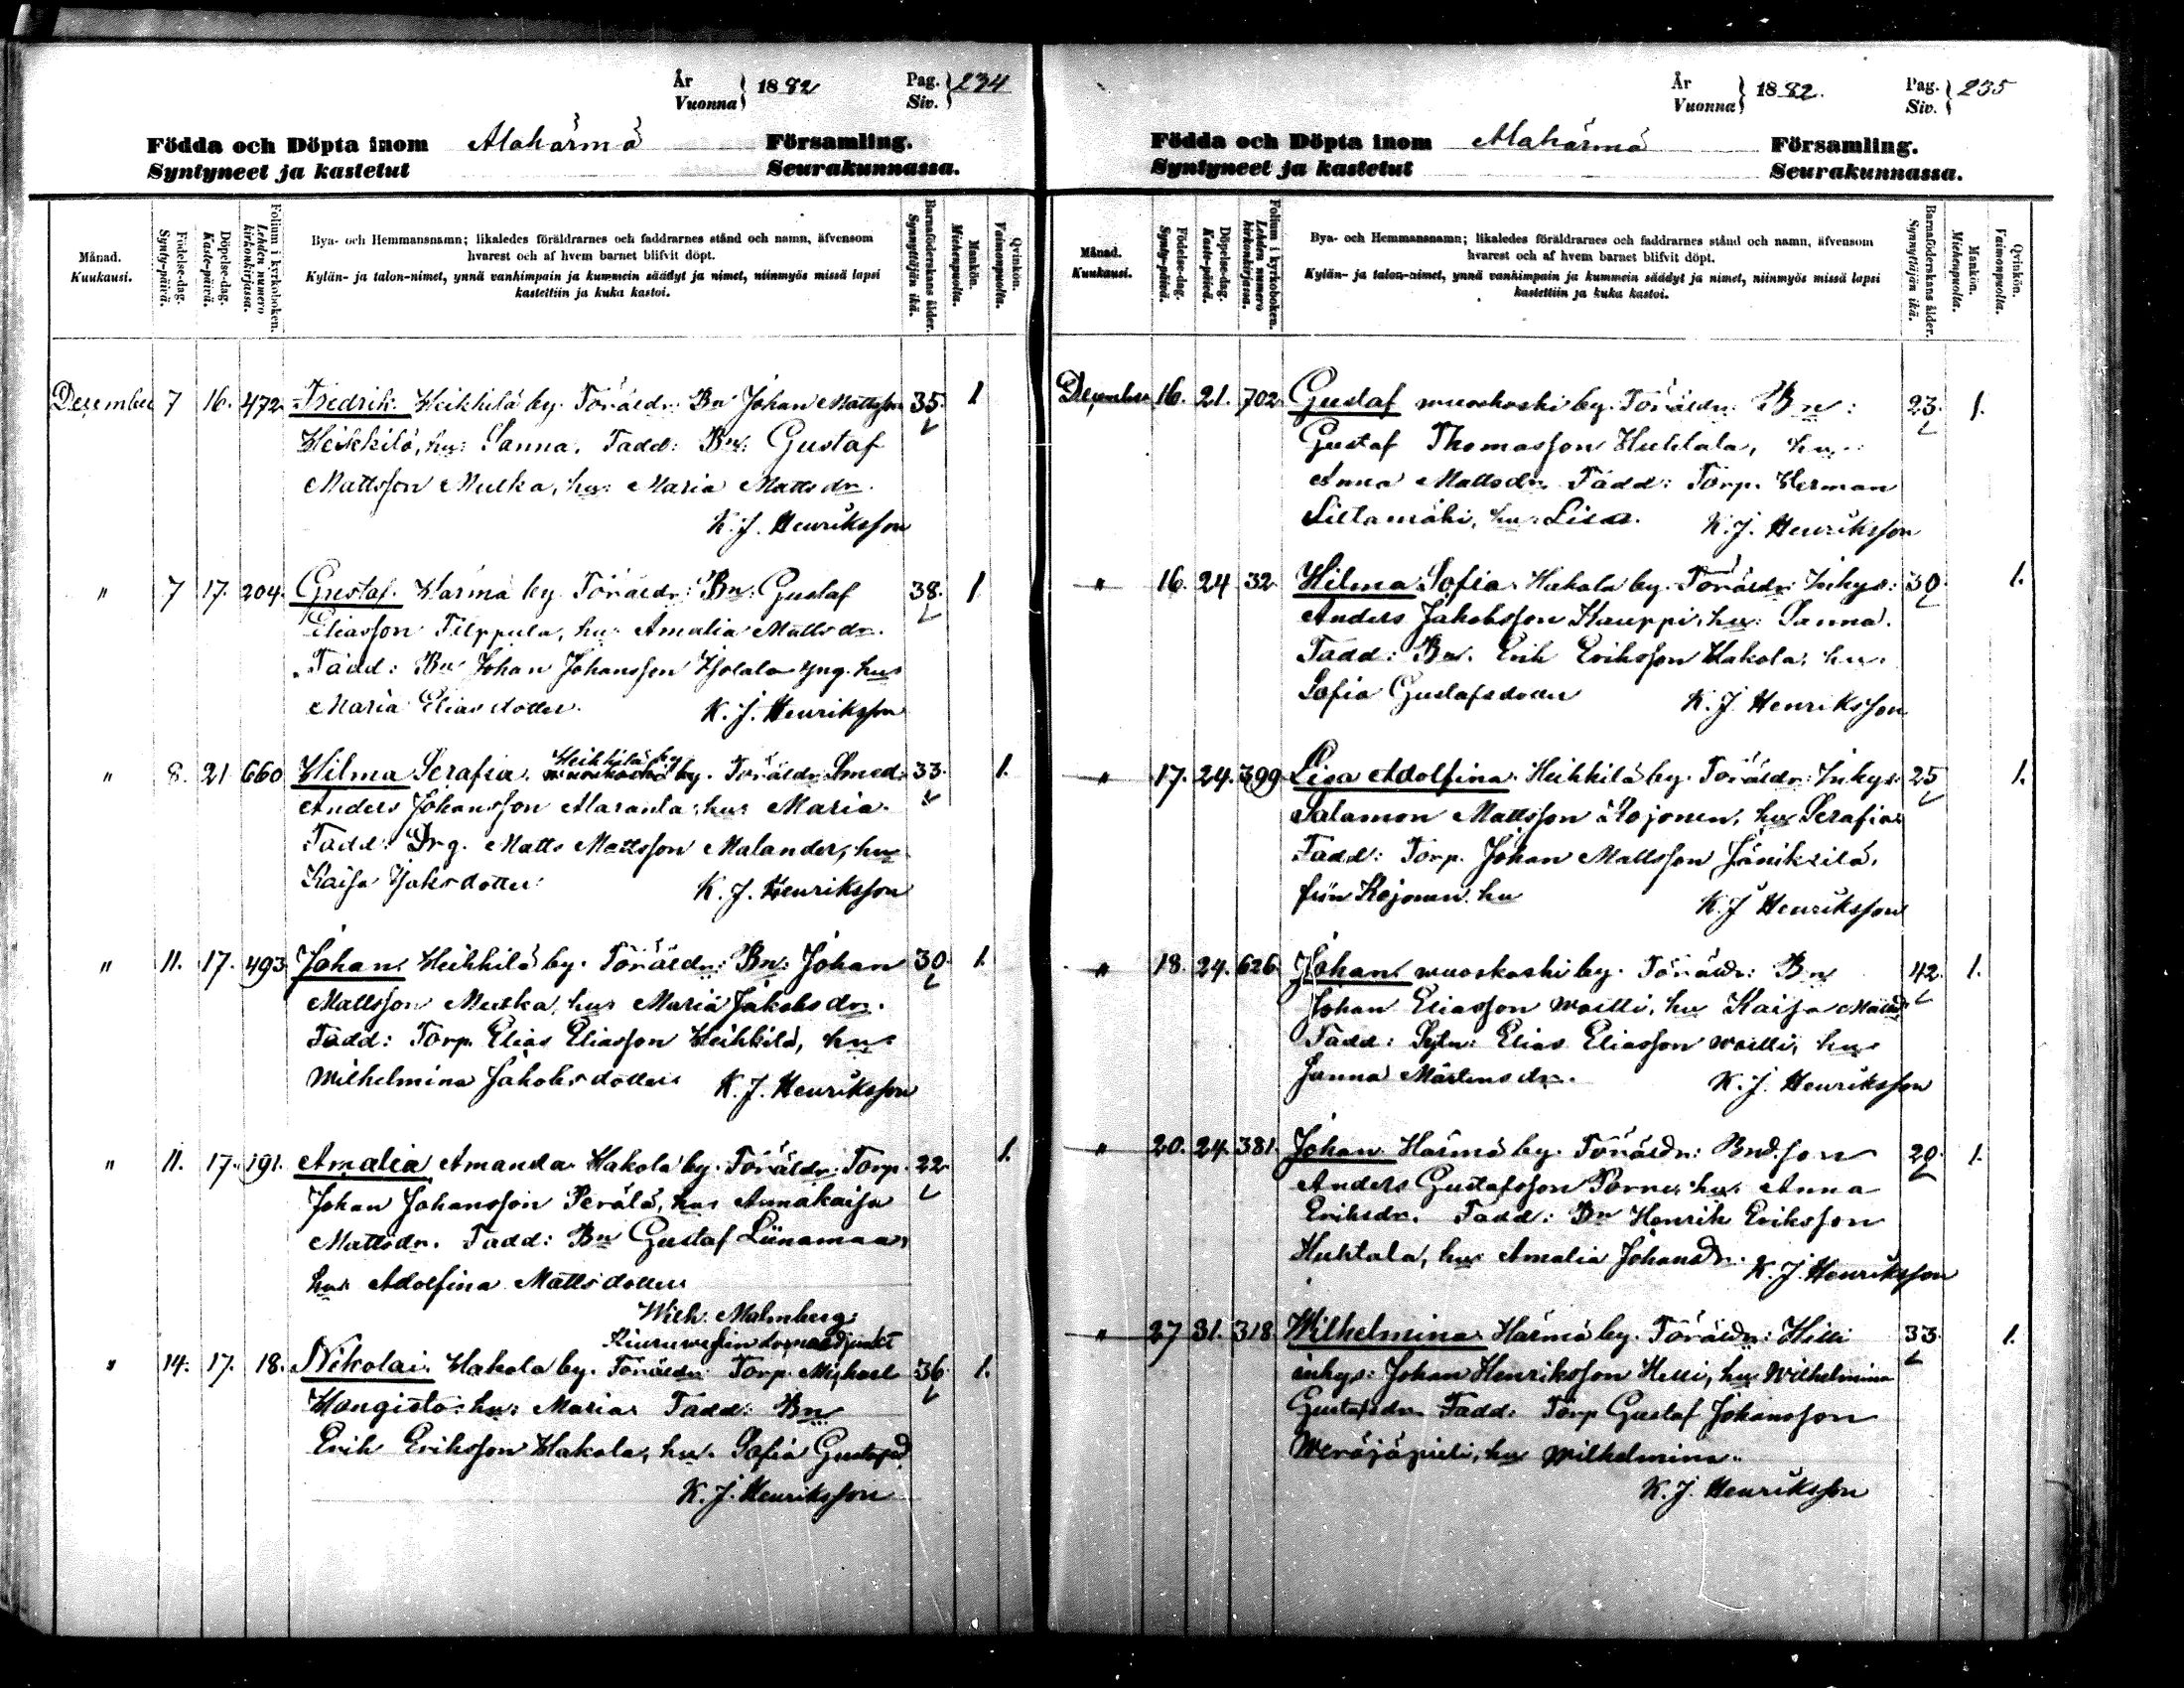 År
Vuonna } 1882
Pag.
Siv. } 234
Födda och Döpta inom Alahärmä Församling.
Syntyneet ja kastetut Seurakunnassa.
Månad.
Kuukausi.
Födelse-dag.
Synty-päivä.
Döpelse-dag.
Kaste-päivä.
Folium i kyrkoboken.
Lehden numero kirkonkirjassa.
Bya- och Hemmansnamn; likaledes föräldrarnes och faddrarnes stånd och namn, äfvensom
hvarest och af hvem barnet blifvit döpt.
Kylän- ja talon-nimet, ynnä vanhimpain ja kummein säädyt ja nimet, niinmyös missä lapsi
kastettiin ja kuka kastoi.
Barnaföderskans ålder.
Synnyttäjän ikä.
Mankön.
Miehenpuolta.
Qvinkön.
Vaimonpuolta.
December 7 16. 472 Fredrik. Heikkilä by. Föräldr: Bn Johan Mattsson 35. 1
Heikkilä, hu: Sanna. Fadd: Bn: Gustaf
Mattsson Mutka, hu: Maria Mattsdr.
K. J. Henriksson
" 7 17. 204. Gustaf. Härmä by. Föräldr: Bn: Gustaf 38. 1
Eliasson Filppula, hu: Amalia Mattsdr.
Fadd: Bn Johan Johansson yng. hu
Maria Eliasdotter.
K. J. Henriksson
" 8. 21 660 Hilma Serafia. Heikkilä by by. Föräldr: Smed. 33. 1.
Anders Johansson Alaranta, hu: Maria.
Fadd: Drg. Matts Mattsson Malander, hu
Kaisa Jakobsdotter
K. J. Henriksson
" 11. 17. 493 Johan. Heikkilä by. Föräldr: Bn: Johan 30. 1.
Mattsson Mutka, hu: Maria Jakobsdr.
Fadd: Torp. Elias Eliasson Heikkilä, hu:
Wilhelmina Jakobsdotter.
K. J. Henriksson
" 11. 17. 191. Amalia Amanda. Hakola by. Föräldr: Torp. 22. 1.
Johan Johansson Perälä, hu: Annakaisa
Mattsdr. Fadd: Bn Gustaf Liinamaa,
hu: Adolfina Mattsdotter.
Wilh. Malmberg
" 14. 17. 18. Nikolai. Hakola by. Föräldr: Torp. Mikael 36. 1.
Hangisto. hu: Maria. Fadd: Bn
Erik Eriksson Hakola, hu. Sofia Gustafsd.
K. J. Henriksson
År
Vuonna } 1882.
Pag.
Siv. } 235
Födda och Döpta inom Alahärmä Församling.
Syntyneet ja kastetut Seurakunnassa.
Månad.
Kuukausi.
Födelse-dag.
Synty-päivä.
Döpelse-dag.
Kaste-päivä.
Folium i kyrkoboken.
Lehden numero kirkonkirjassa.
Bya- och Hemmansnamn; likaledes föräldrarnes och faddrarnes stånd och namn, äfvensom
hvarest och af hvem barnet blifvit döpt.
Kylän- ja talon-nimet, ynnä vanhimpain ja kummein säädyt ja nimet, niinmyös missä lapsi
kastettiin ja kuka kastoi.
Barnaföderskans ålder.
Synnyttäjän ikä.
Mankön.
Miehenpuolta.
Qvinkön.
Vaimonpuolta.
December 16. 21. 702 Gustaf wuoskoski by. Föräldr: Bn: 23. 1.
Gustaf Thomasson Huhtala, hu:
Anna Mattsdr. Fadd: Torp. Herman
hu: Lisa.
K. J. Henriksson
" 16. 24 32 Hilma Sofia. Hakola by. Föräldr: Inhys: 30. 1.
Anders Jakobsson Kauppi, hu: Sanna.
Fadd: Bn. Erik Eriksson Hakola, hu.
Sofia Gustafsdotter
K. J. Henriksson
" 17. 24. 399 Lisa Adolfina. Heikkilä by. Föräldr: Inhys. 25 1.
Salamon Mattsson Kojonen, hu Serafia
Fadd: Torp. Johan Mattsson
från Kojonen. hu
K. J Henriksson
" 18. 24. 626 Johan wuoskoski by. Föräldr: Bn 42. 1.
Johan Eliasson wailli, hu Kaisa Mattsd
Fadd: Sytn: Elias Eliasson wailli, hu
Sanna Mårtensdr.
K. J. Henriksson
" 20. 24. 381. Johan Härmä by. Föräldr: Bnd.son 20. 1.
Anders Gustafsson Porre, hu. Anna
Eriksdr. Fadd: Bn Henrik Eriksson
Huhtala, hu: Amalia Johansdr.
K. J. Henriksson
" 27 31. 318. Wilhelmina. Härmä by. Föräldr: Hilli 33. 1.
inhys: Johan Henriksson Hilli, hu Wilhelmina
Gustafsdr. Fadd: Torp Gustaf Johansson
hu Wilhelmina.
K. J. Henriksson